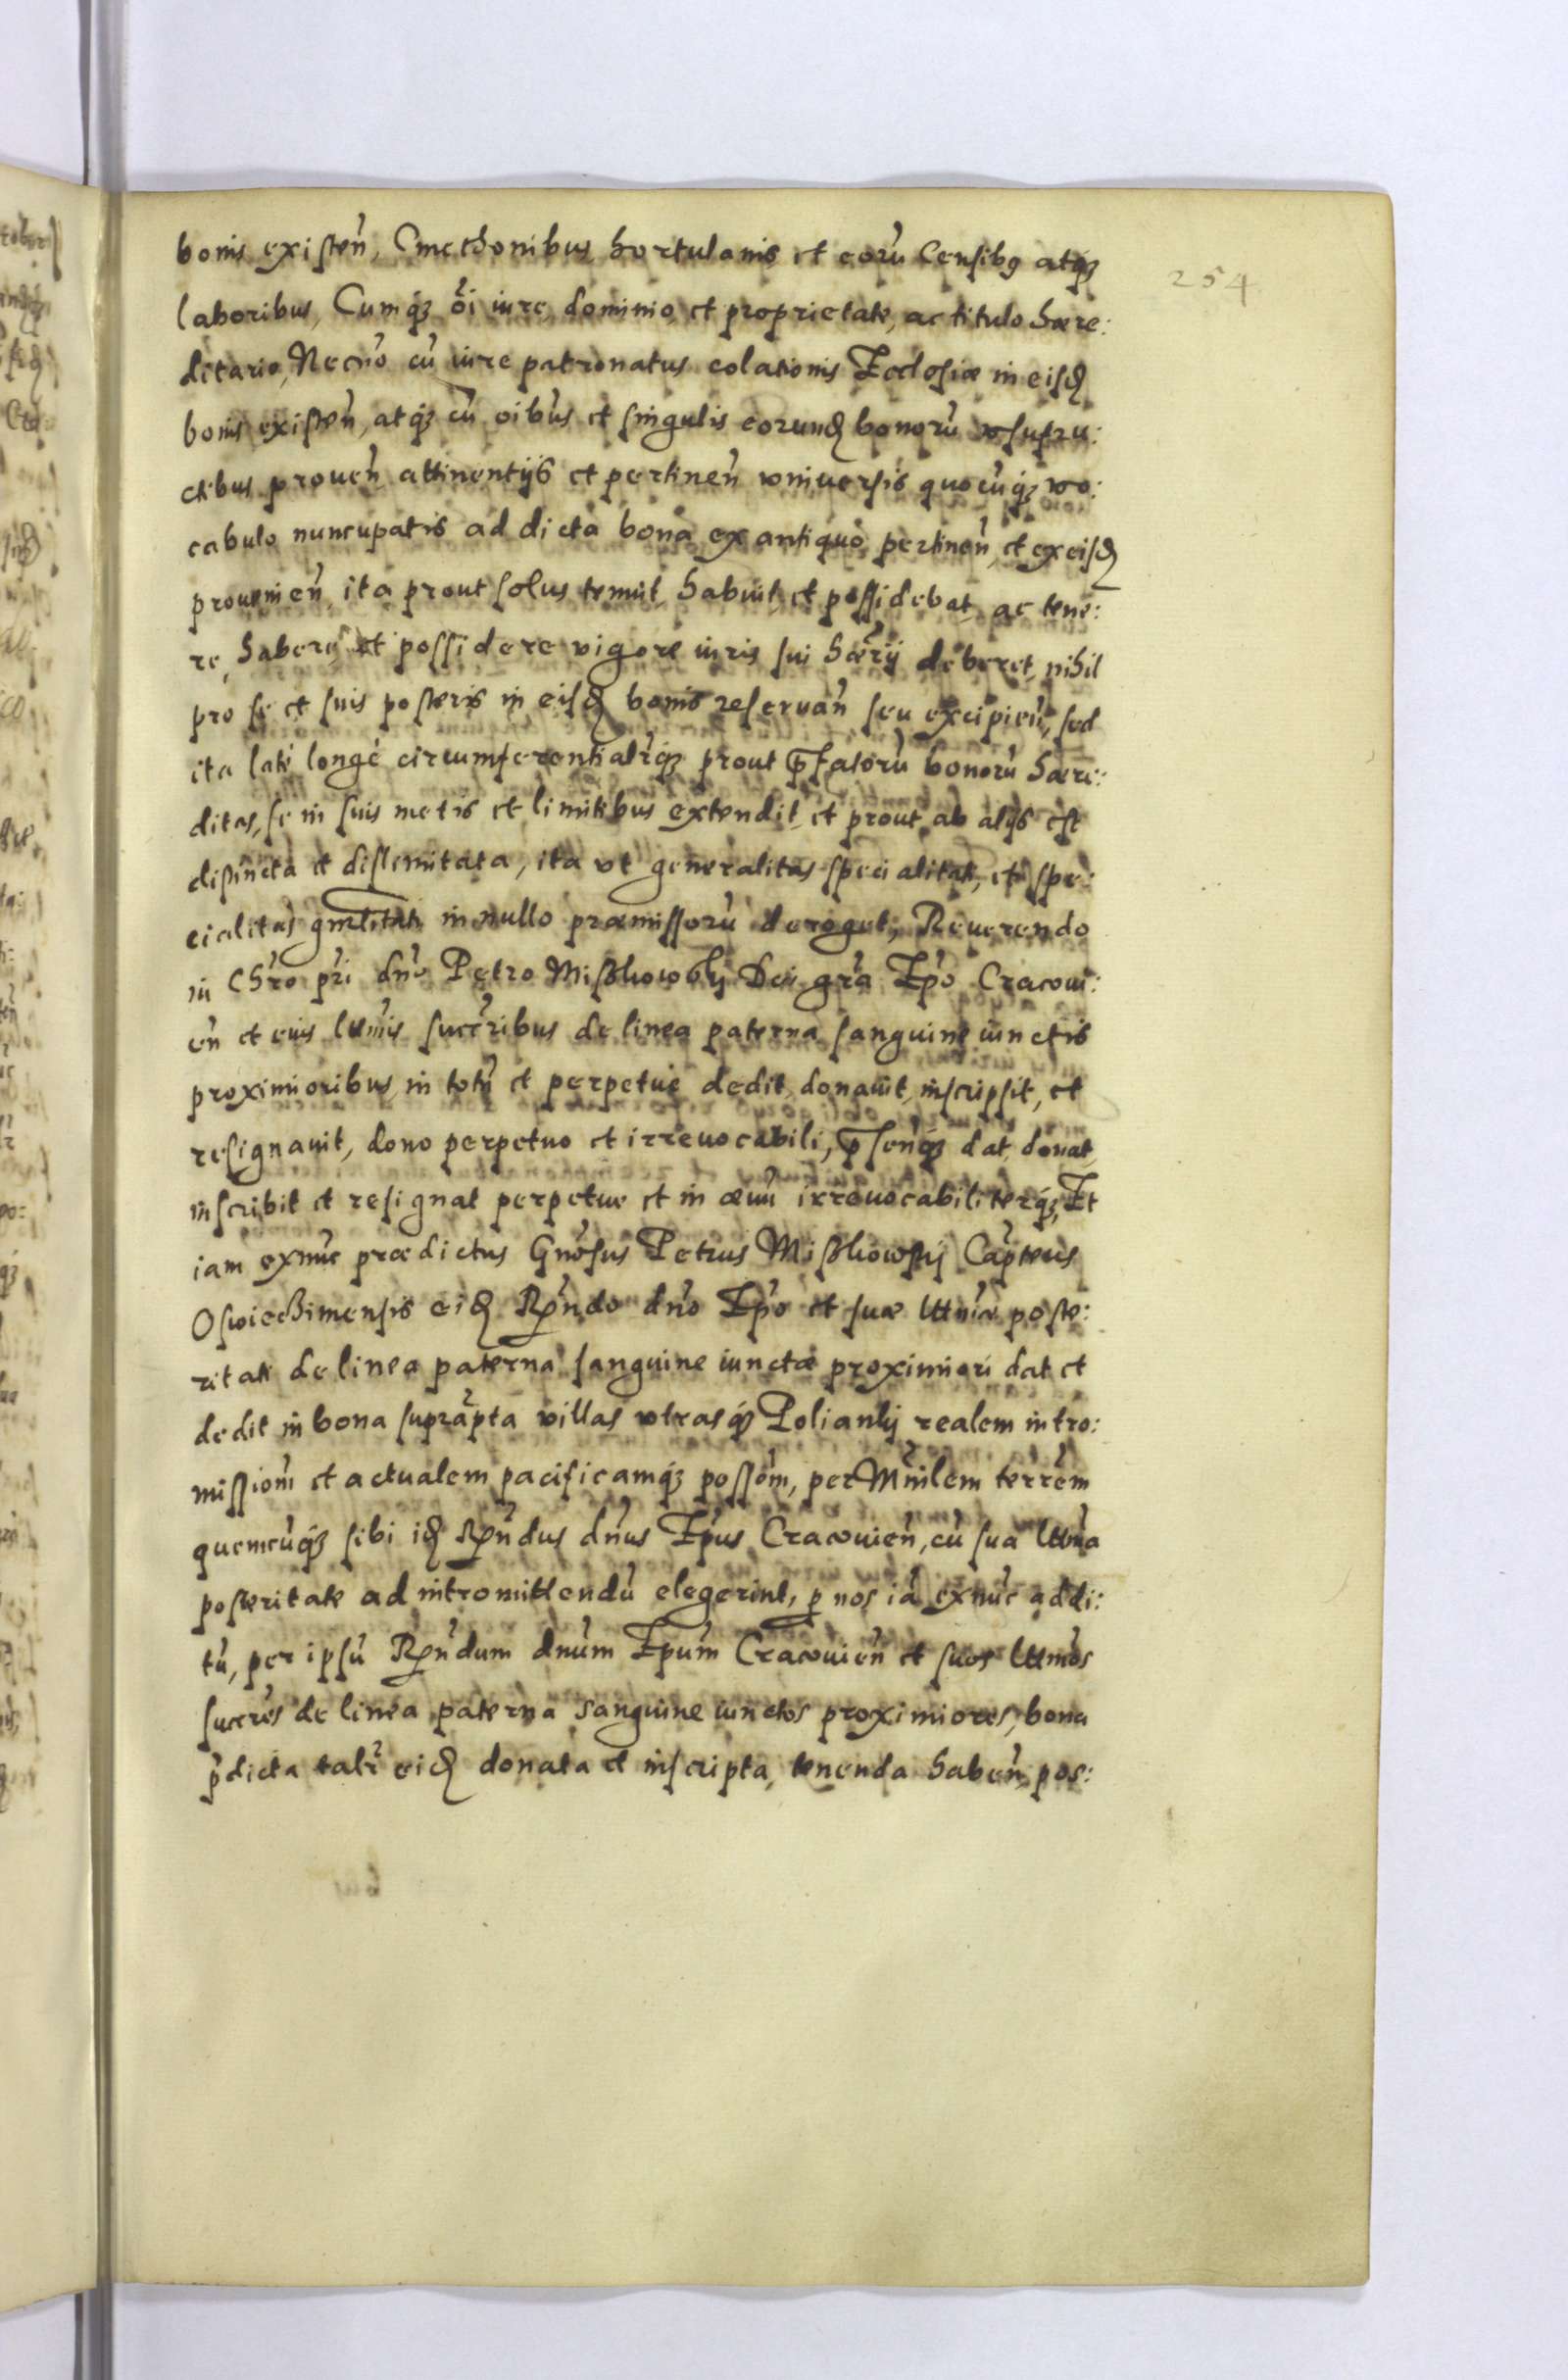 bonis existeñ, Cmethonibus hortulanis et eorũ Censibꝰ atqꝫ
254
laboribus, Cumqꝫ õi iure, dominio, et proprietate, ac titulo hære:
ditario, Necnõ cũ iure patronatus colationis Ecclesiæ in eisꝺ
bonis existeñ, atqꝫ cũ oibũs et singulis eorunꝺ bonorũ vsufru:
ctibus proueñ attinentijs et pertineñ vniuersis quocũqꝫ vo:
cabulo nuncupatis ad dicta bona ex antiquo pertineñ, et ex eisꝺ
prouenieñ, ita prout solus tenuit, habuit, et possidebat, ac tene:
re, habere, et possidere vigore iuris sui hærij deberet, nihil
pro se et suis posteris in eisꝺ bonis reseruañ seu excipieñ, sed
ita latè longè circumferentialr̃qꝫ prout p̃fatorũ bonorũ hære:
ditas, se in suis metis et limitibus extendit, et prout ab alijs est
distincta et dislimitata, ita vt generalitas specialitati, et spe:
cialitas gñrlitati in nullo præmissorũ deroget, Reuerendo
in Chr̃o pr̃i dn̄o Petro Mißkowskij Dei gr̃a Ep̃o Cracoui:
eñ et eius ltĩmis succr̃ibus de linea paterna sanguine iunctis
proximioribus, in totũ et perpetuè dedit, donauit, inscripsit, et
resignauit, dono perpetuo et irreuocabili, p̃señqꝫ dat, donat,
inscribit et resignat perpetue et in æuũ irreuocabiliterqꝫ, Et
iam exnũc prædictus Gñosus Petrus Mißkowskij Cap̃teus
Oswieczimensis eiꝺ Rp̃ndo dn̄o Ep̃o et suæ ltt̃mæ poste:
ritati de linea paterna sanguine iunctæ proximiori dat et
dedit in bona suprãpta villas vtrasqꝫ Polianky realem intro:
missionẽ et actualem pacificamqꝫ possõm, per Mĩnlem terrẽm
quemcũqꝫ sibi iꝺ Rp̃ndus dn̄us Ep̃us Cracouieñ, cũ sua ltt̃ma
posteritate ad intromittendũ elegerint, ꝑ nos iã exnũc addi:
tũ, per ipsũ Rp̃ndum dn̄um Ep̃um Cracouieñ et suos ltt̃mos
succr̃es de linea paterna sanguine iunctos proximiores, bona
p̃dicta talr̃ eiꝺ donata et inscripta, tenenda habeñ, pos: